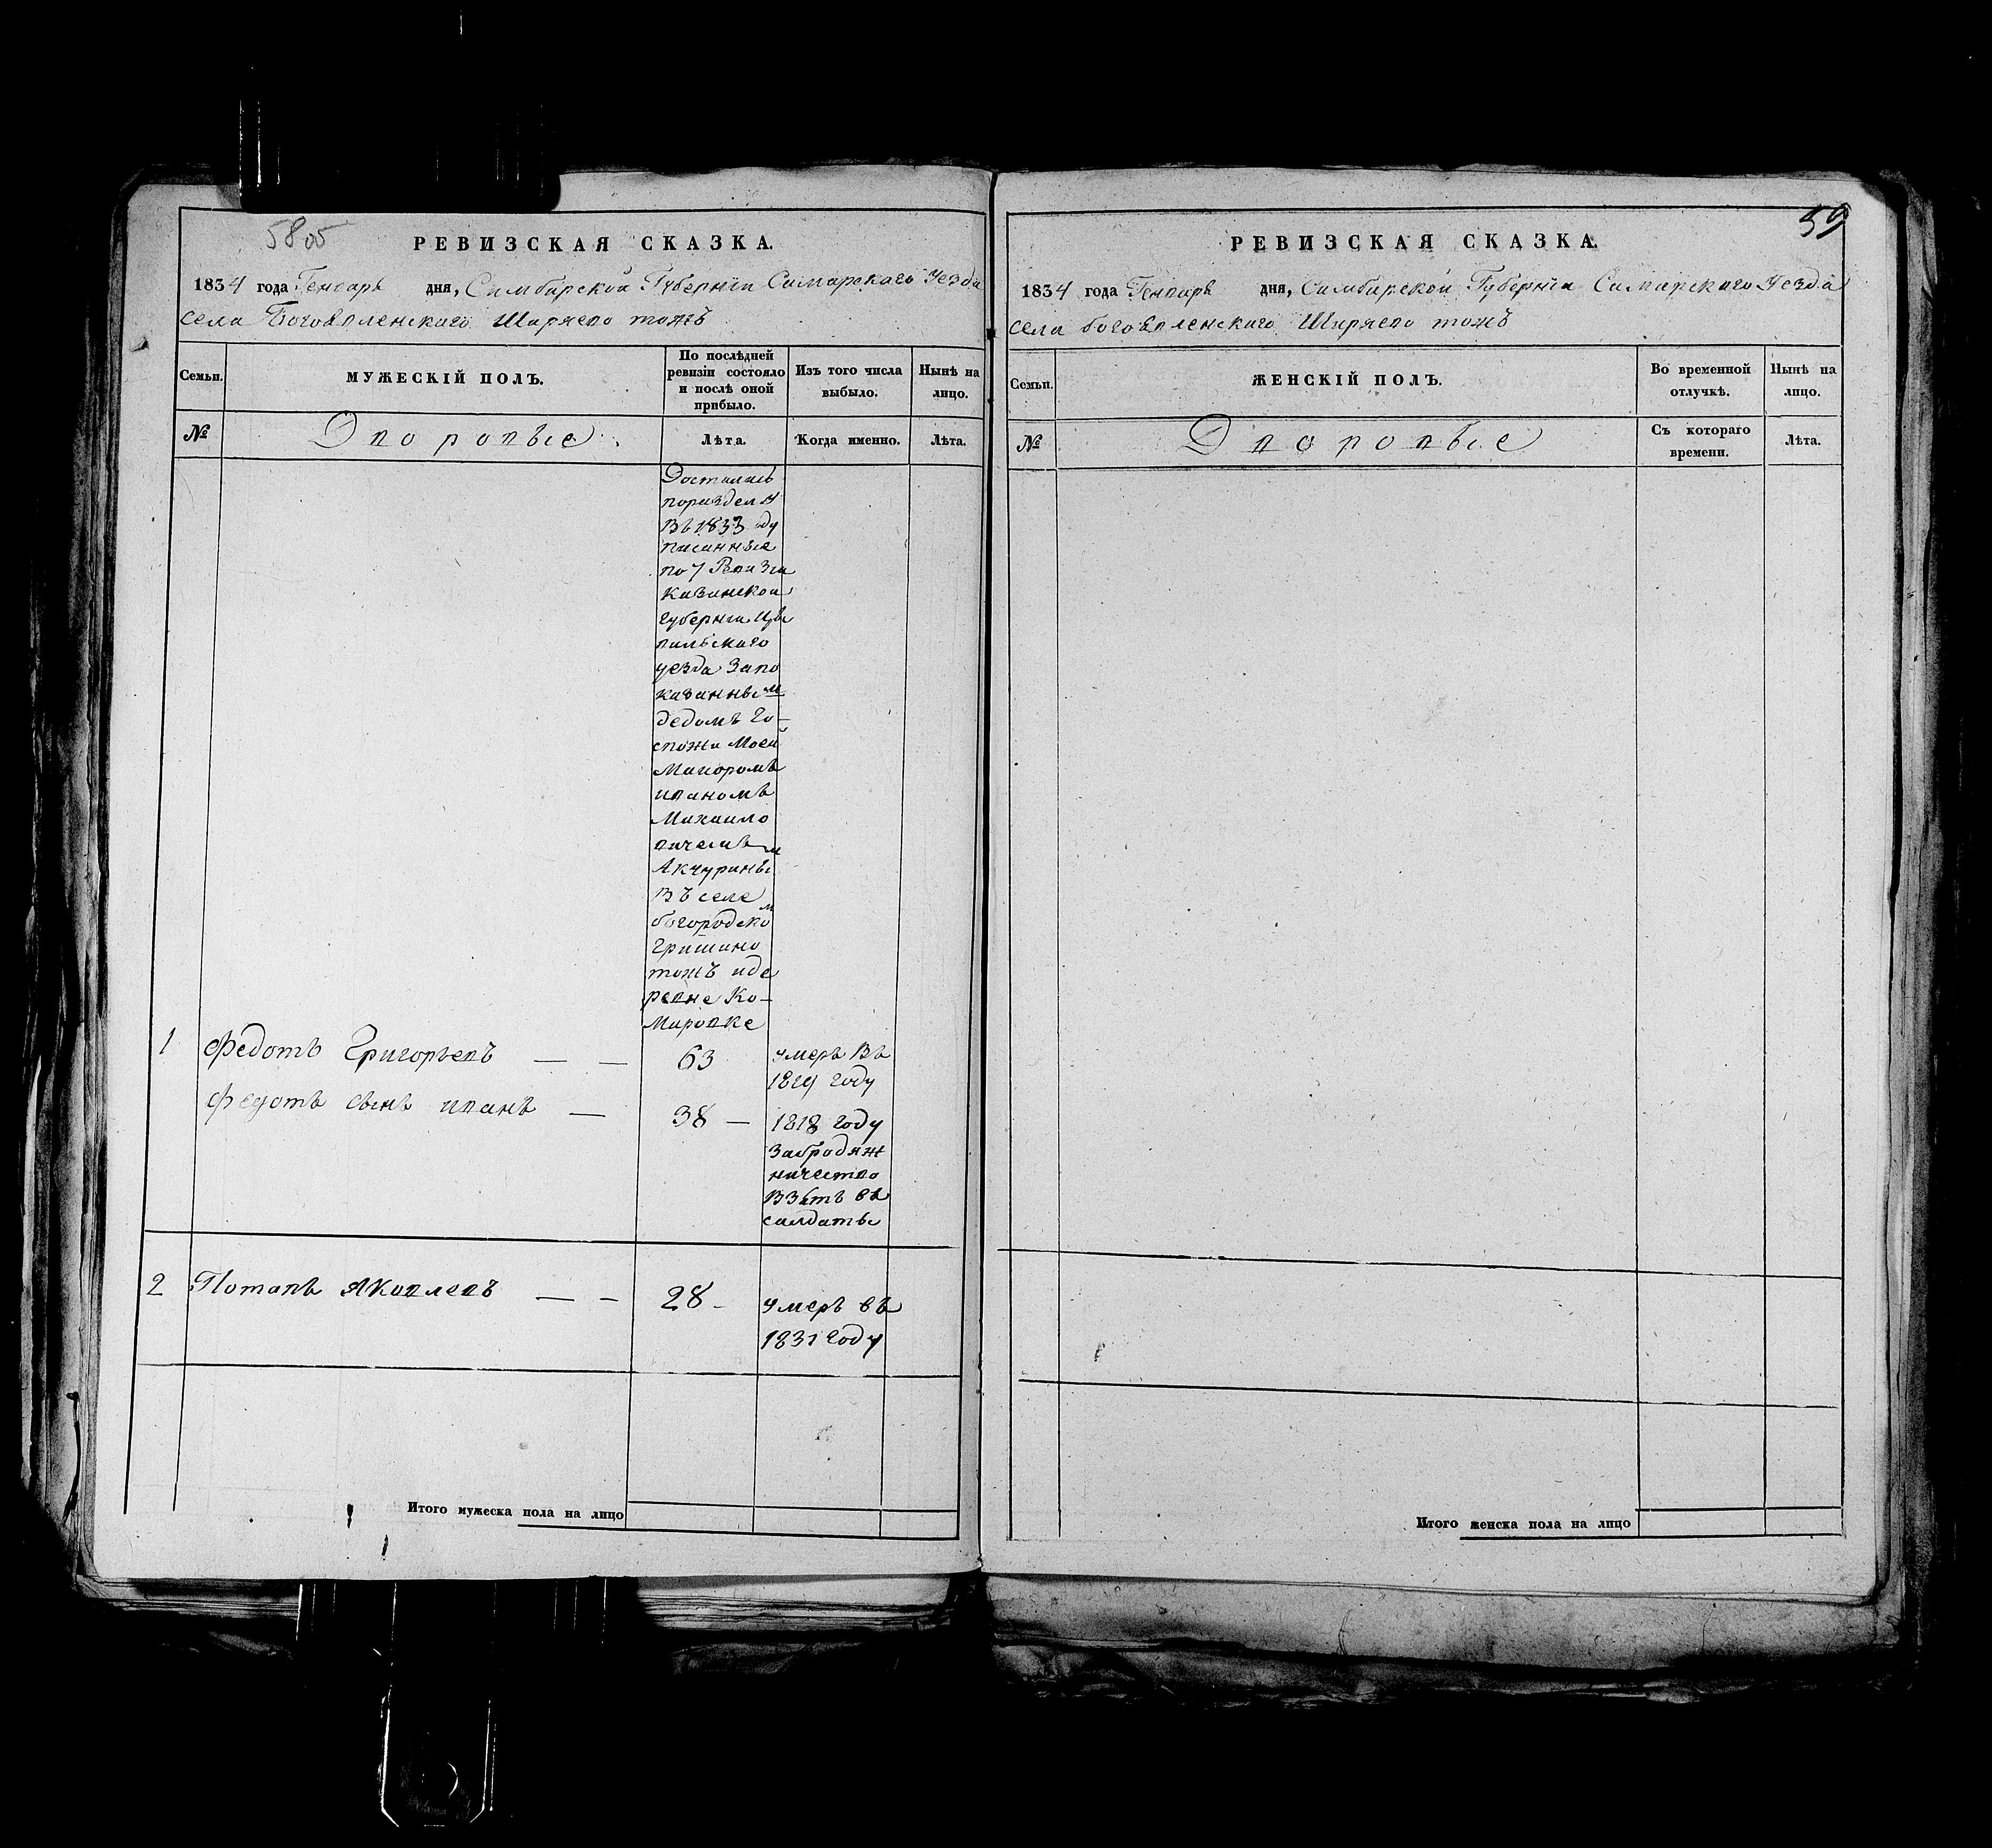 58 об
РЕВИЗСКАЯ СКАЗКА.
1834 года Генварь дня, Симбирской Губернии Самарского Уезда
села Богоявленского Ширяево тожъ
Семьи.
МУЖЕСКІЙ ПОЛЪ.
По послѣдней
ревизіи состояло
и послѣ оной
прибыло.
Изъ того числа
выбыло.
Нынѣ на
лицо.
№
Дворовые
Лѣта.
Когда именно.
Лѣта.
Достались
поразделу
въ 1833 году
писанные
по 7 Ревизіи
Казанской
губерніи Циви
льского
уезда запо
казанным
дедомъ Го-
спожи Моей
Маиоромъ
иваномъ
Михайло
вичемъ
Акчуриным
Въ селе
богородском
Гришино
тожъ иде
ревне Ко-
маровке
1 Федотъ Григорьевъ — — 63
умеръ въ
1829 году
Федотъ сынъ иванъ — 38 —
1818 году
забродяж
ничество
взятъ въ
салдаты
2 Потапъ Яковлевъ — – 28 -
умеръ въ
1831 году
Итого мужеска пола на лицо
59
РЕВИЗСКАЯ СКАЗКА.
1834 года Генварь дня, Симбирской Губерніи Самарского Уезда
села богоявленского Ширяево тожъ
Семьи.
ЖЕНСКІЙ ПОЛЪ.
Во временной
отлучкѣ.
Нынѣ на
лицо.
№
Дворовые
Съ котораго
времени.
Лѣта.
Итого женска пола на лицо